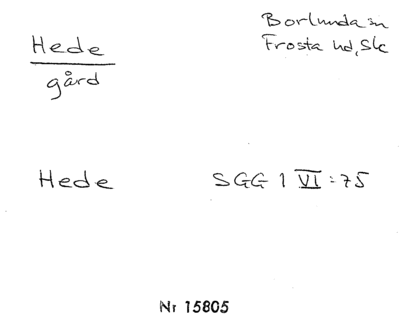 Hede
gård
Borlunda sn
Frosta hd, Sk
Hede SGG 1 VI:75
Nr 15805